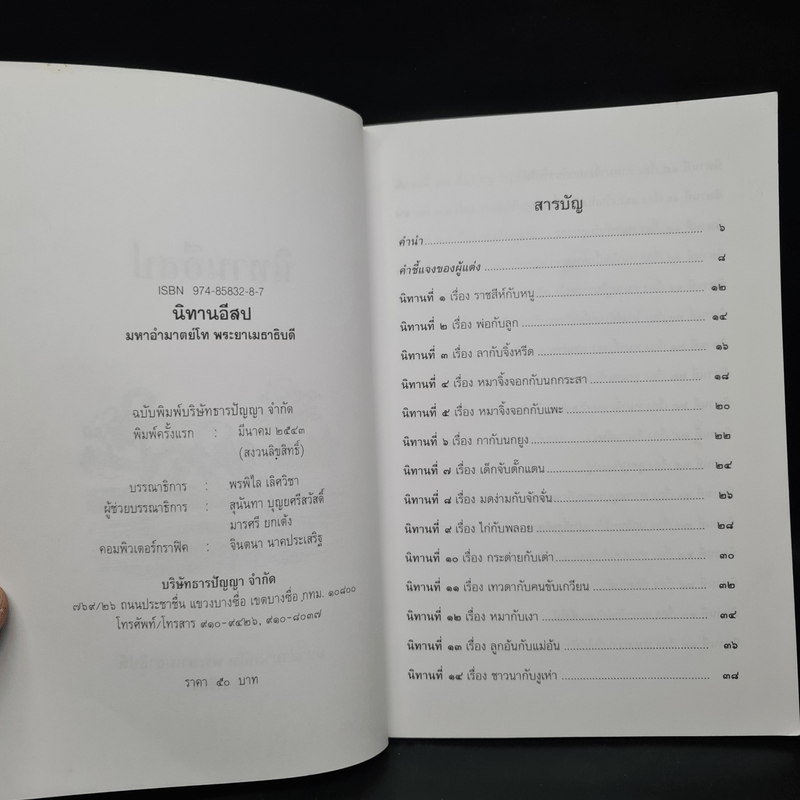 ISBN 974-85832-8-7
นิทานอีสป
มหาอำมาตย์โท พระยาเมธาธิบดี
ฉบับพิมพ์บริษัทธารปัญญา จำกัด
พิมพ์ครั้งแรก : มีนาคม ๒๕๔๓
(สงวนลิขสิทธิ์)
บรรณาธิการ : พรพิไล เลิศวิชา
ผู้ช่วยบรรณาธิการ : สุนันทา บุญยศรีสวัสดิ์
มารศรี ยกเต้ง
คอมพิวเตอร์กราฟิค : จินตนา นาคประเสริฐ
บริษัทธารปัญญา จำกัด
๗๖๙/๒๖ ถนนประชาชื่น แขวงบางซื่อ เขตบางซื่อ กทม. ๑๐๘๐๐
โทรศัพท์/โทรสาร ๙๑๐-๙๔๒๖, ๙๑๐-๘๐๓๗
ราคา ๕๐ บาท
สารบัญ
คำนำ ๖
คำชี้แจงของผู้แต่ง ๘
นิทานที่ ๑ เรื่อง ราชสีห์กับหนู ๑๒
นิทานที่ ๒ เรื่อง พ่อกับลูก ๑๔
นิทานที่ ๓ เรื่อง ลากับจิ้งหรีด ๑๖
นิทานที่ ๔ เรื่อง หมาจิ้งจอกกับนกกระสา ๑๘
นิทานที่ ๕ เรื่อง หมาจิ้งจอกกับแพะ ๒๐
นิทานที่ ๖ เรื่อง กากับนกยูง ๒๒
นิทานที่ ๗ เรื่อง เด็กจับตั๊กแตน ๒๔
นิทานที่ ๘ เรื่อง มดง่ามกับจักจั่น ๒๖
นิทานที่ ๙ เรื่อง ไก่กับพลอย ๒๘
นิทานที่ ๑๐ เรื่อง กระต่ายกับเต่า ๓๐
นิทานที่ ๑๑ เรื่อง เทวดากับคนขับเกวียน ๓๒
นิทานที่ ๑๒ เรื่อง หมากับเงา ๓๔
นิทานที่ ๑๓ เรื่อง ลูกอ้นกับแม่อ้น ๓๖
นิทานที่ ๑๔ เรื่อง ชาวนากับงูเห่า ๓๘